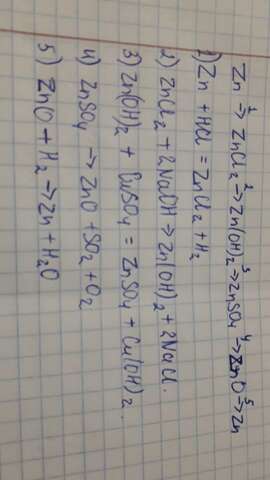 Zn →¹ ZnCl₂ →² Zn(OH)₂ →³ ZnSO₄ →⁴ ZnO →⁵ Zn
1) Zn + HCl = ZnCl₂ + H₂
2) ZnCl₂ + 2NaOH → Zn(OH)₂ + 2NaCl.
3) Zn(OH)₂ + CuSO₄ = ZnSO₄ + Cu(OH)₂.
4) ZnSO₄ → ZnO + SO₂ + O₂
5) ZnO + H₂ → Zn + H₂O